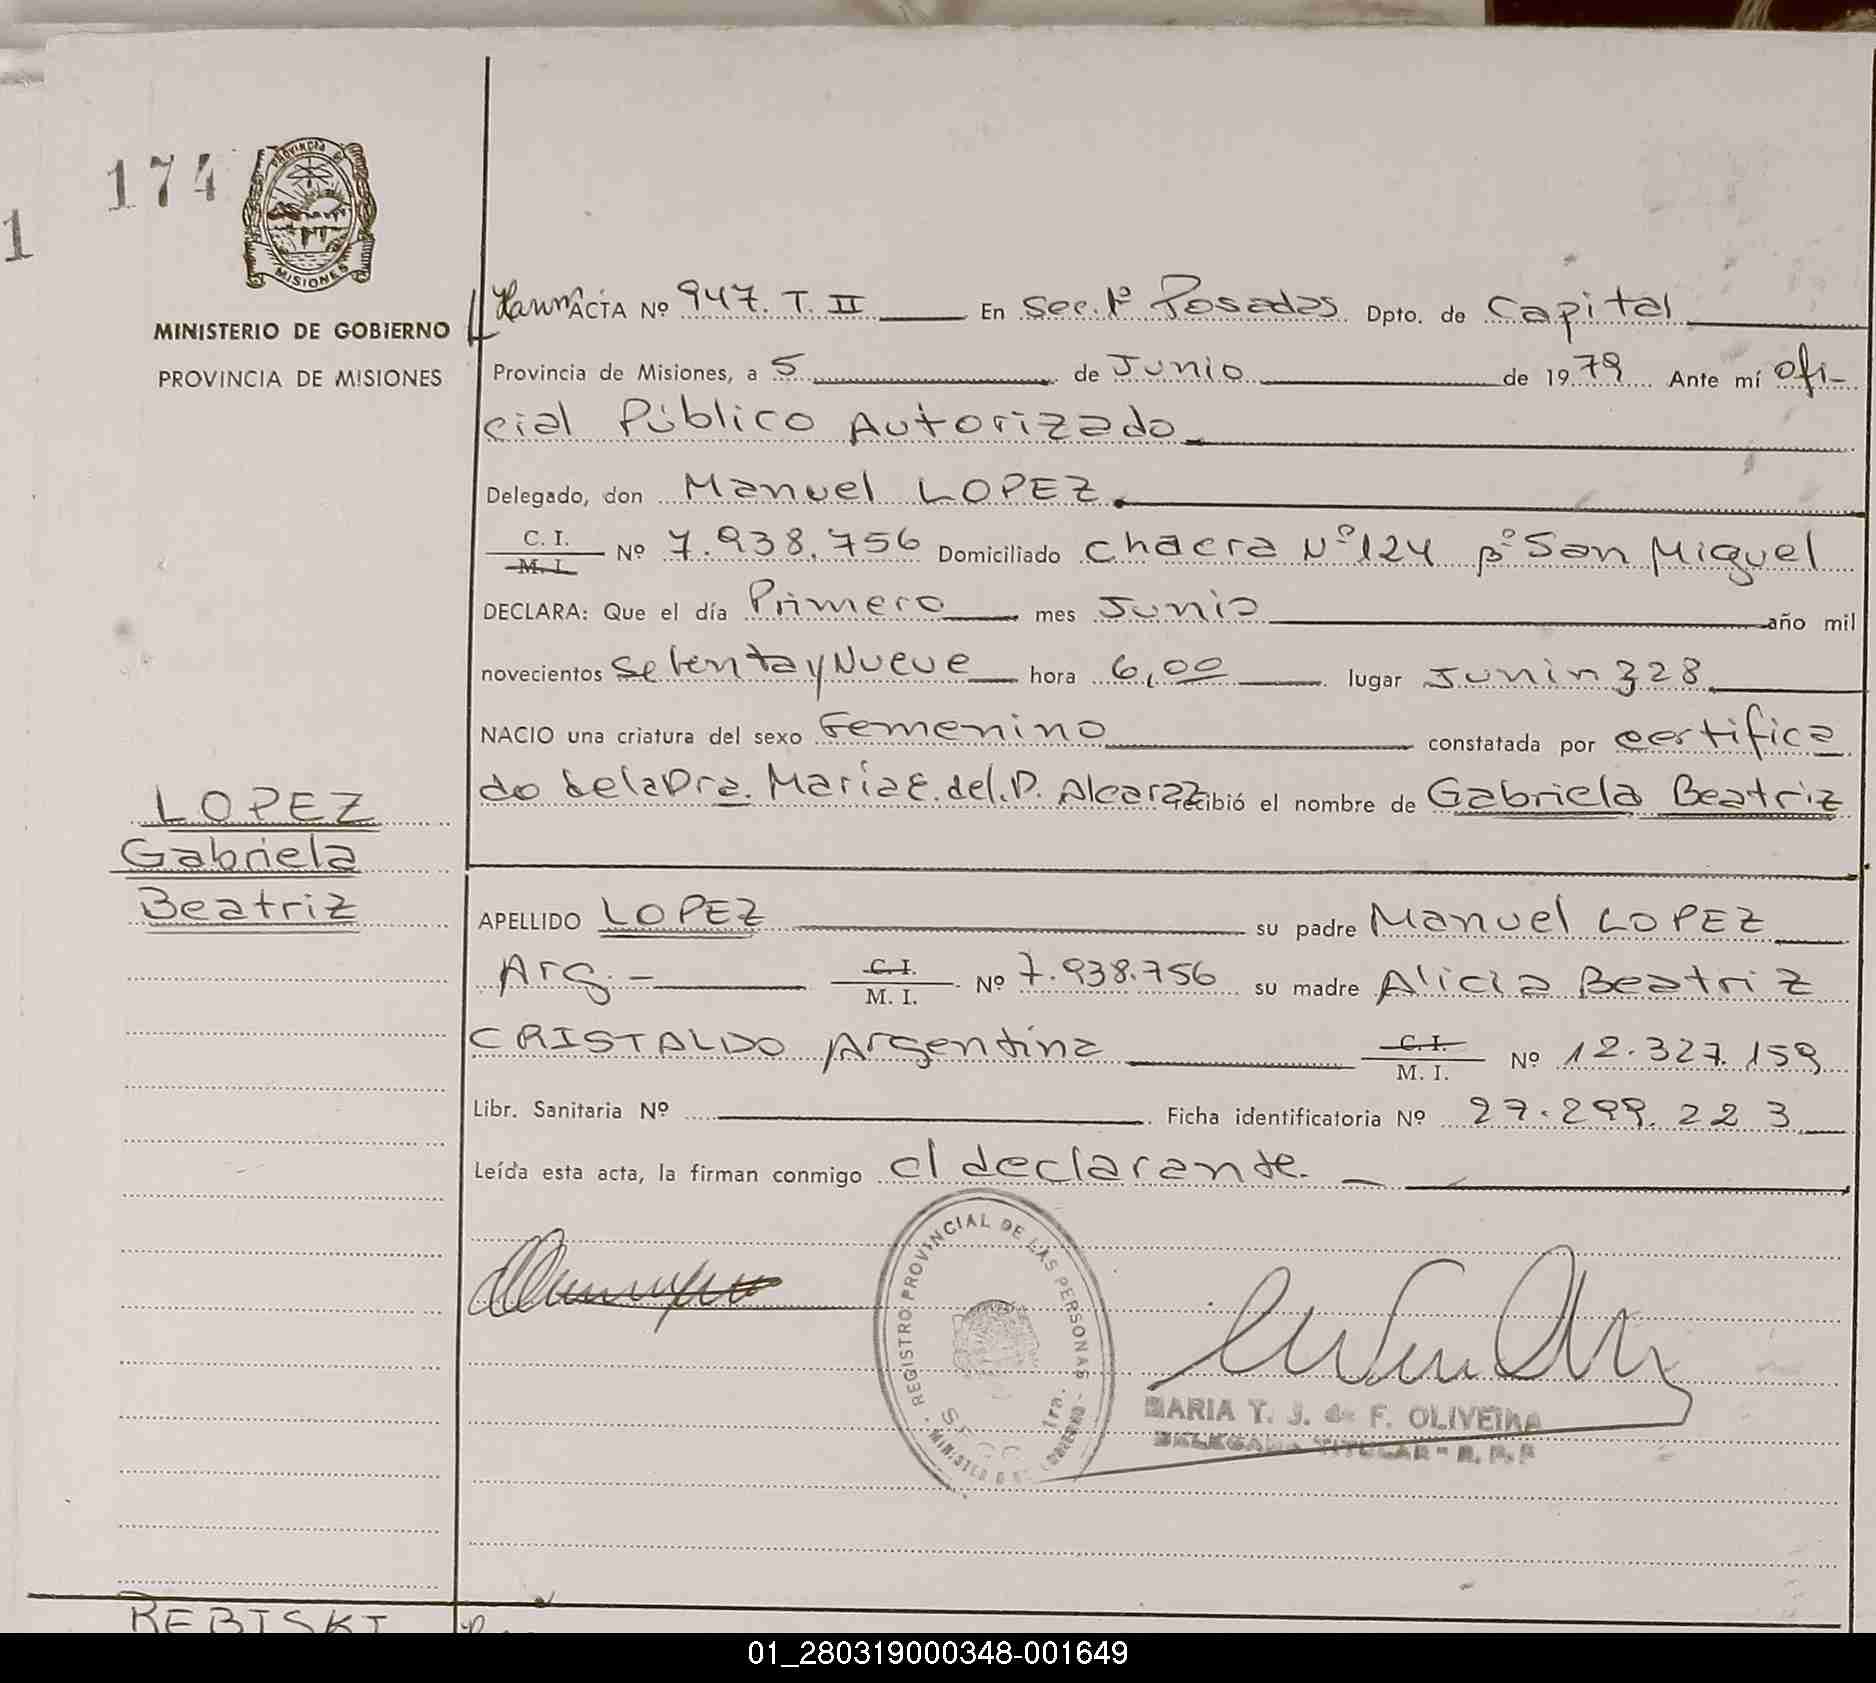 174
1
PROVINCIA DE
MISIONES
MINISTERIO DE GOBIERNO
PROVINCIA DE MISIONES
LOPEZ
Gabriela
Beatriz
ACTA Nº 947. T. II En Sec. 1º Posadas Dpto. de Capital
Provincia de Misiones, a 5 de Junio de 1979 Ante mí ofi-
cial Público Autorizado
Delegado, don Manuel LOPEZ
C. I.
M. I. Nº 7.938.756 Domiciliado chacra Nº 124 Bº San Miguel
DECLARA: Que el día Primero mes Junio año mil
novecientos Setenta y Nueve hora 6,00 lugar Junin 328
NACIO una criatura del sexo Femenino constatada por certifica
do de la Dra. Maria E. del. P. Alcaraz recibió el nombre de Gabriela Beatriz
APELLIDO LOPEZ su padre Manuel LOPEZ
Arg.- C. I.
M. I. Nº 7.938.756 su madre Alicia Beatriz
CRISTALDO Argentina C. I.
M. I. Nº 12.327.159
Libr. Sanitaria Nº Ficha identificatoria Nº 27.299.223
Leída esta acta, la firman conmigo el declarante.
REGISTRO PROVINCIAL DE LAS PERSONAS
1ra.
MARIA T. J. de F. OLIVEIRA
DELEGADA TITULAR - R. P. P
REBISKI
01_280319000348-001649